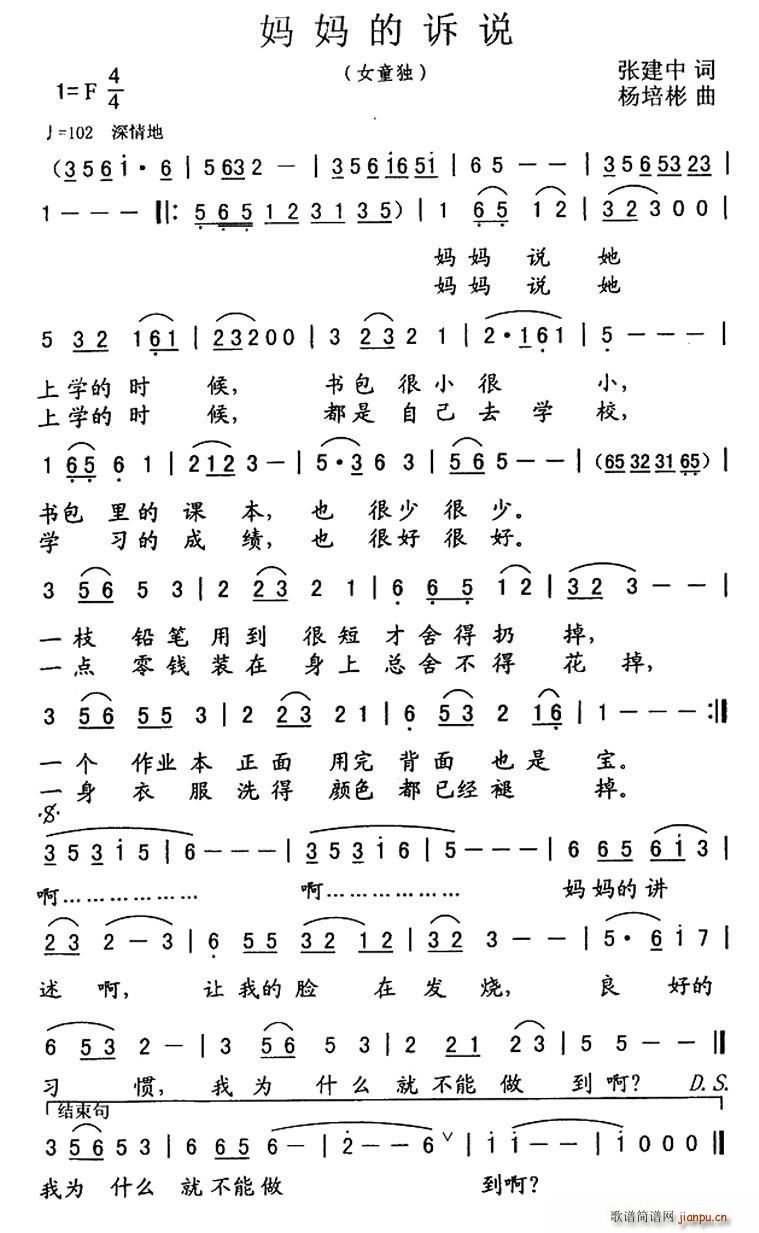 妈妈的诉说
（女童独）
1=F 4/4
张建中 词
杨培彬 曲
♩=102 深情地
（3 5 6 i · 6 | 5 632 － | 356 i6 5i | 6 5 － － | 356 5323 |
1 － － － ‖: 5 65 12 31 35）| 1 65 12 | 32 3 0 0 |
妈妈 说 她
妈妈 说 她
5 32 161 | 23 2 0 0 | 3 23 2 1 | 2 · 161 | 5 － － － |
上学的 时 候， 书包 很 小 很 小，
上学的 时 候， 都是 自 己 去 学 校，
1 65 6 1 | 212 3 － | 5 · 3 6 3 | 56 5 － － | （65 32 31 65）|
书包 里的 课 本， 也 很少 很 少。
学 习的 成 绩， 也 很好 很 好。
3 56 5 3 | 2 23 2 1 | 6 65 12 | 32 3 － － |
一枝 铅笔 用到 很 短 才舍得扔 掉，
一点 零钱 装在 身上 总舍不得 花 掉，
3 56 55 3 | 2 23 21 | 6 53 2 16 | 1 － － － :‖
一个 作业本 正面 用完 背面 也是 宝。
一身 衣 服 洗得 颜色 都已经褪 掉。
3 5 3 i 5 | 6 － － － | 3 5 3 i 6 | 5 － － － | 6 65 6i3 |
啊……………… 啊……………… 妈妈的讲
23 2 － 3 | 6 55 32 12 | 32 3 － － | 5 · 6 i 7 |
述 啊， 让我的 脸 在 发 烧， 良 好的
6 53 2 － | 3 56 5 3 | 2 21 23 | 5 5 － － ‖
习 惯， 我为 什么就不能做 到啊？ D.S.
结束句
3 56 5 3 | 6 65 6 － | 2 － － 6 ∨ | i i － － | i 0 0 0 ‖
我为 什么 就不能做 到啊？
歌谱简谱网
jianpu.cn